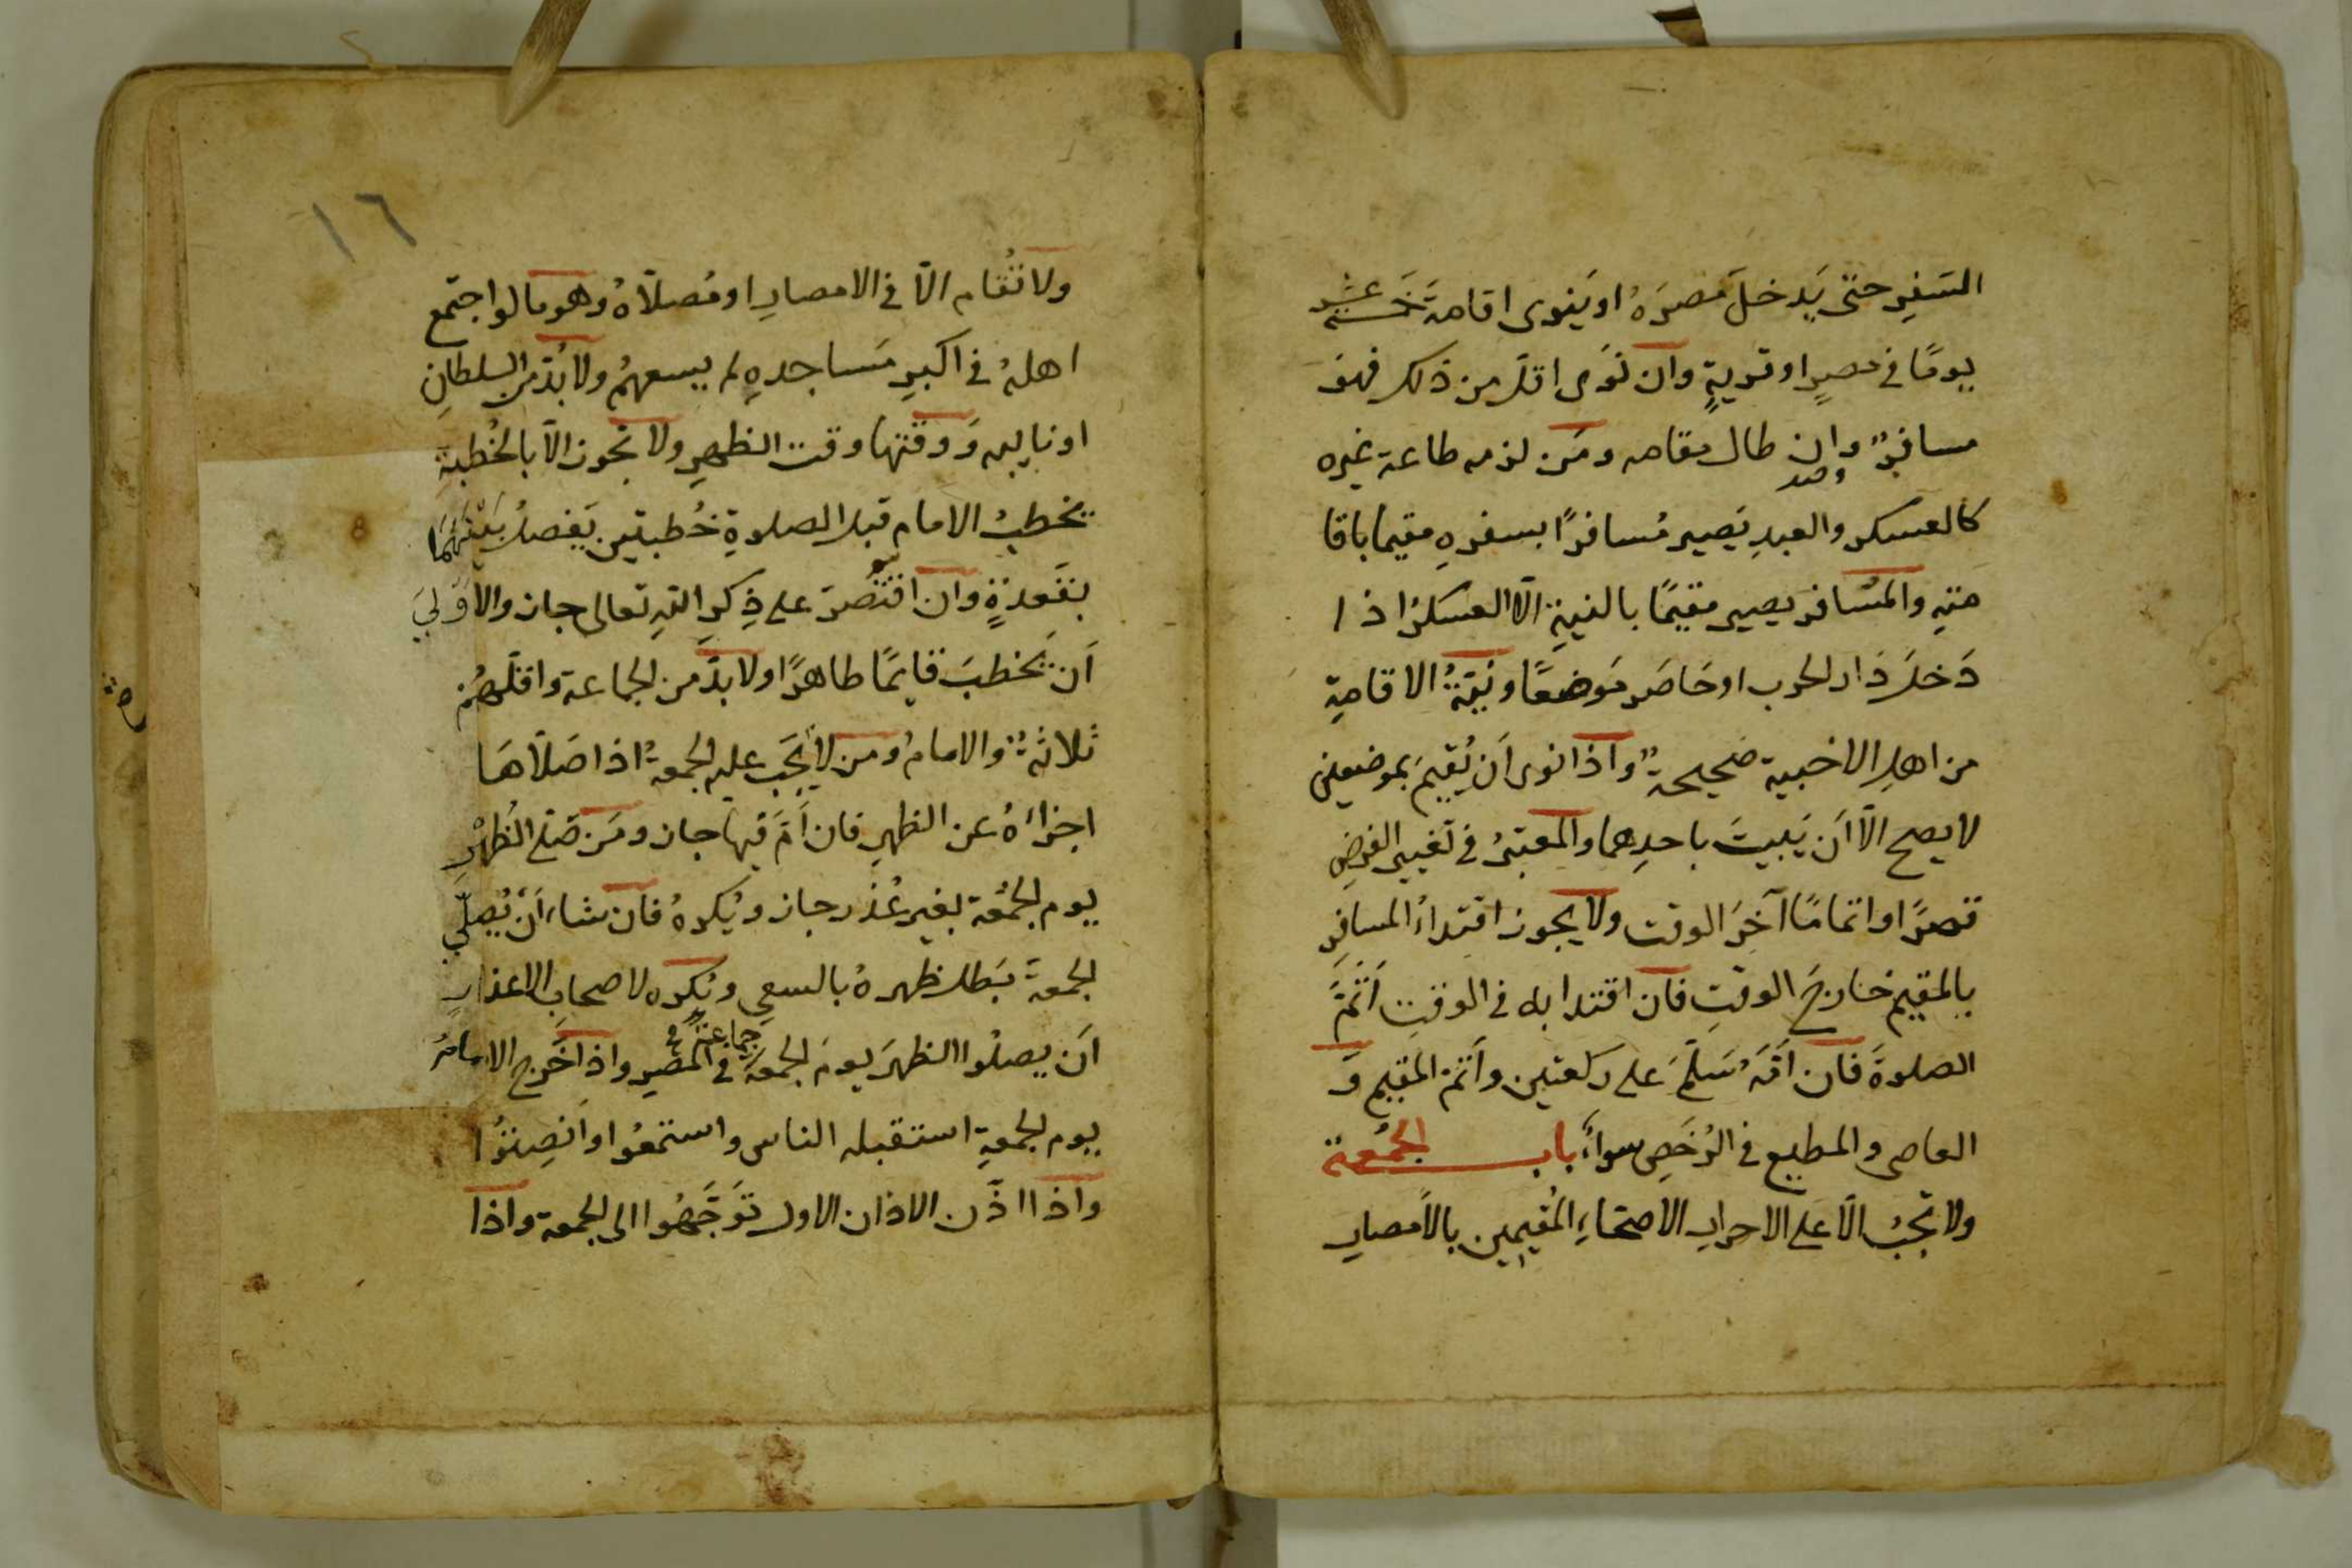 السَفرِ حتّى يَدخلَ مصرَهُ او يَنوى اقامةَ خَمسةَ عشر
يومًا فى مصرٍ او قريةٍ وان نَوَى اقلّ من ذلك فهوَ
مسافرٌ وان طال مقامه ومَن لزمه طاعة غيره
كالعسكر والعبدِ يَصير مُسافرًا بسفرهِ مقيما باقا
متهِ والمُسافر يصير مقيمًا بالنيةِ الّا العسكرُ اذا
دَخلَ دَار الحرب او حَاصَر مَوضعًا ونيّةُ الاقامةِ
من اهلِ الاخبية صَحيحةٌ واذا نوى اَن يُقيمَ بموضعين
لا يصح الّا اَن يَبيتَ باحدِهما والمعتبرُ فى تَغيير الفرضِ
قصرًا او اتمامًا آخرَ الوقت ولا يجوز اقتداءُ المسافرِ
بالمقيم خارجَ الوقتِ فان اقتدا به فى الوقتِ اَتمَّ
الصلوةَ فان اَمَّهُ سَلّمَ على ركعتين واَتمّ المقيم وَ
العاصى والمطيع فى الرُخَصِ سواءٌ باب الجُمُعة
ولا تجبُ الّا على الاحرارِ الاصحّاءِ المُقيمين بالاَمصارِ
١٦
ولا تُقام الّا فى الامصارِ او مُصلّاهُ وهو ما لو اجتمع
اهلهُ فى اكبرِ مَساجدهِ لم يسعهمُ ولا بُدّ من السلطانِ
او نايبه وَوقتها وقت الظهرِ ولا تجوز الّا بالخُطبةِ
يخطبُ الامام قبل الصلوةِ خُطبتين يَفصلُ بَيْنهمَا
بقَعدةٍ وان اقتصرَ على ذِكرِ اللهِ تعالى جاز والاَولىَ
اَن يَخطبَ قايمًا طاهرًا ولا بدَّ من الجماعة واقلّهمُ
ثلاثةٌ والامامُ ومن لا تَجب عليه الجمعةُ اذا صَلّاهَا
اجزاَهُ عن الظهرِ فان اَمَّ فيها جاز ومَن صَلى الظُهرِ
يوم الجُمُعة بغير عُذر جاز ويُكرهُ فان شاء اَنْ يُصلّي
الجمعةَ بَطل ظهرهُ بالسعي ويُكره لاصحابِ الاعذارِ
اَن يصلُوا الظهرَ يومَ الجمعة جماعةً فى المصر واذا خَرج الامامُ
يوم الجمعةِ استقبله الناس واستمعُوا واَنصِتُوا
واذا اذَّن الاذان الاول تَوَجَّهُوا الى الجمعة واذا